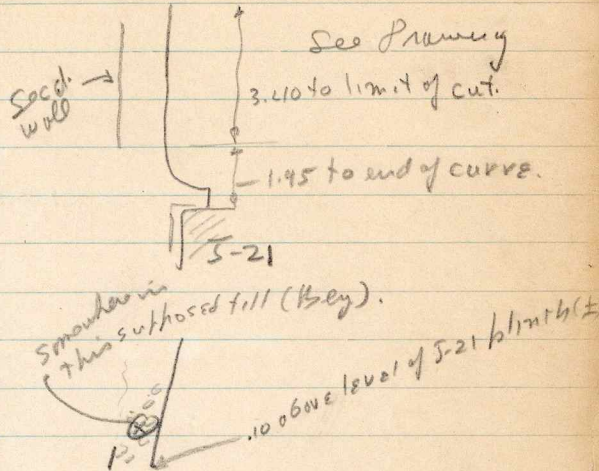 See Drawing
Secd.
wall
3.40 to limit of cut.
1.95 to end of curve.
5-21
Somewhere in
this supposed fill (Bey).
.10 above level of 5-21 plinth (±